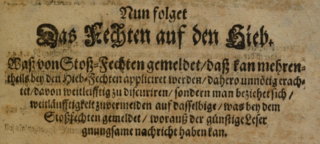 Nun folget
Das Fechten auf den Hieb.
Waß von Stoß-Fechten gemeldet/ daß kan mehren-
theils bey den Hieb-Fechten appliciret werden/ dahero unnötig erach-
tet/ davon weitleufftig zu discuriren/ sondern man beziehet sich/
weitläufftigkeit zuvermeiden auf dasselbige/ was bey dem
Stoßfechten gemeldet/ worauß der günstige Leser
gnungsame nachricht haben kan.